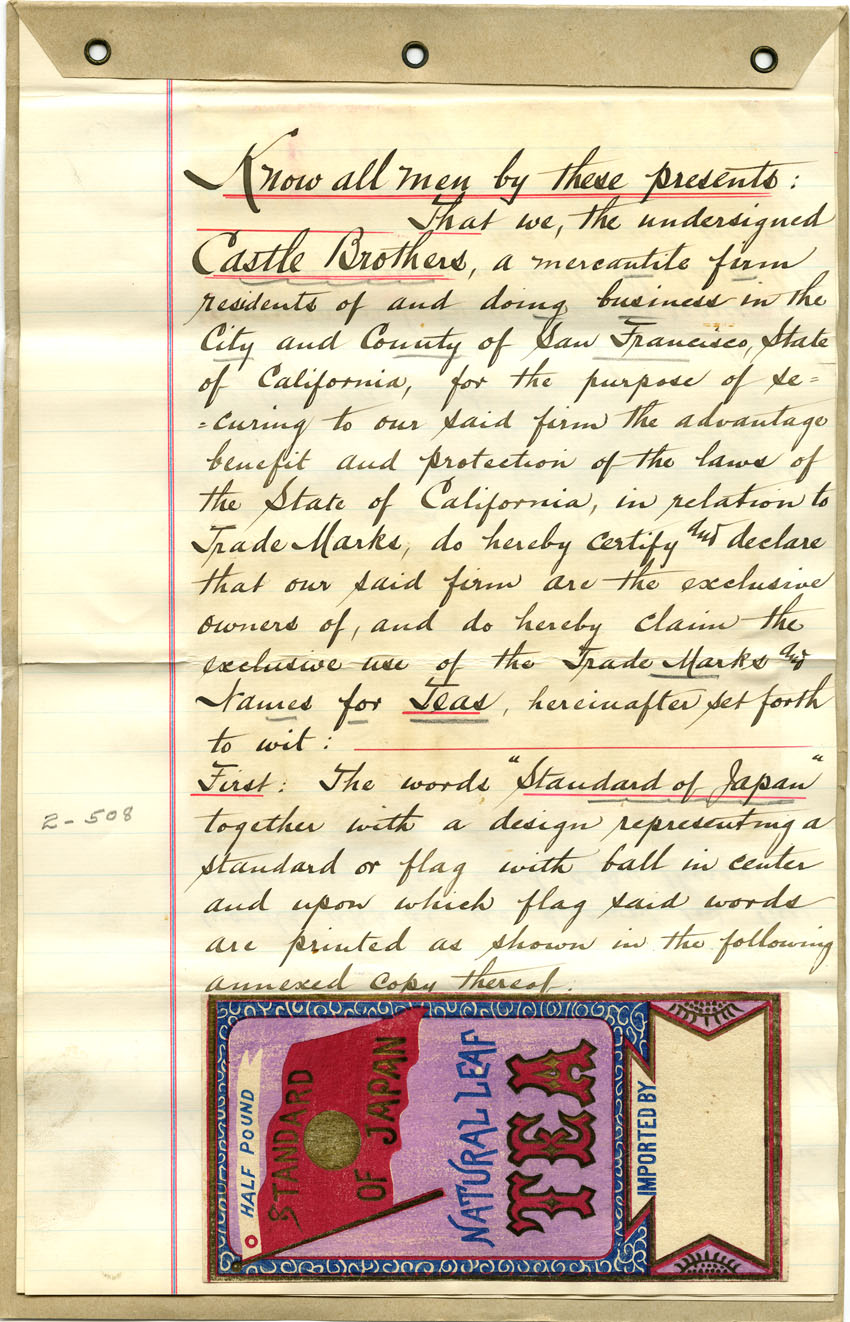 Know all men by these presents:
That we, the undersigned
Castle Brothers, a mercantile firm
residents of and doing business in the
City and County of San Francisco, State
of California, for the purpose of se=
=curing to our said firm the advantage
benefit and protection of the laws of
the State of California, in relation to
Trade Marks, do hereby certify and declare
that our said firm are the exclusive
owners of, and do hereby claim the
exclusive use of the Trade Marks and
Names for Teas, hereinafter set forth
to wit:
First: The words "Standard of Japan"
2-508
together with a design representing a
standard or flag with ball in center
and upon which flag said words
are printed as shown in the following
annexed copy thereof.
HALF POUND
STANDARD
OF JAPAN
NATURAL LEAF
TEA
IMPORTED BY